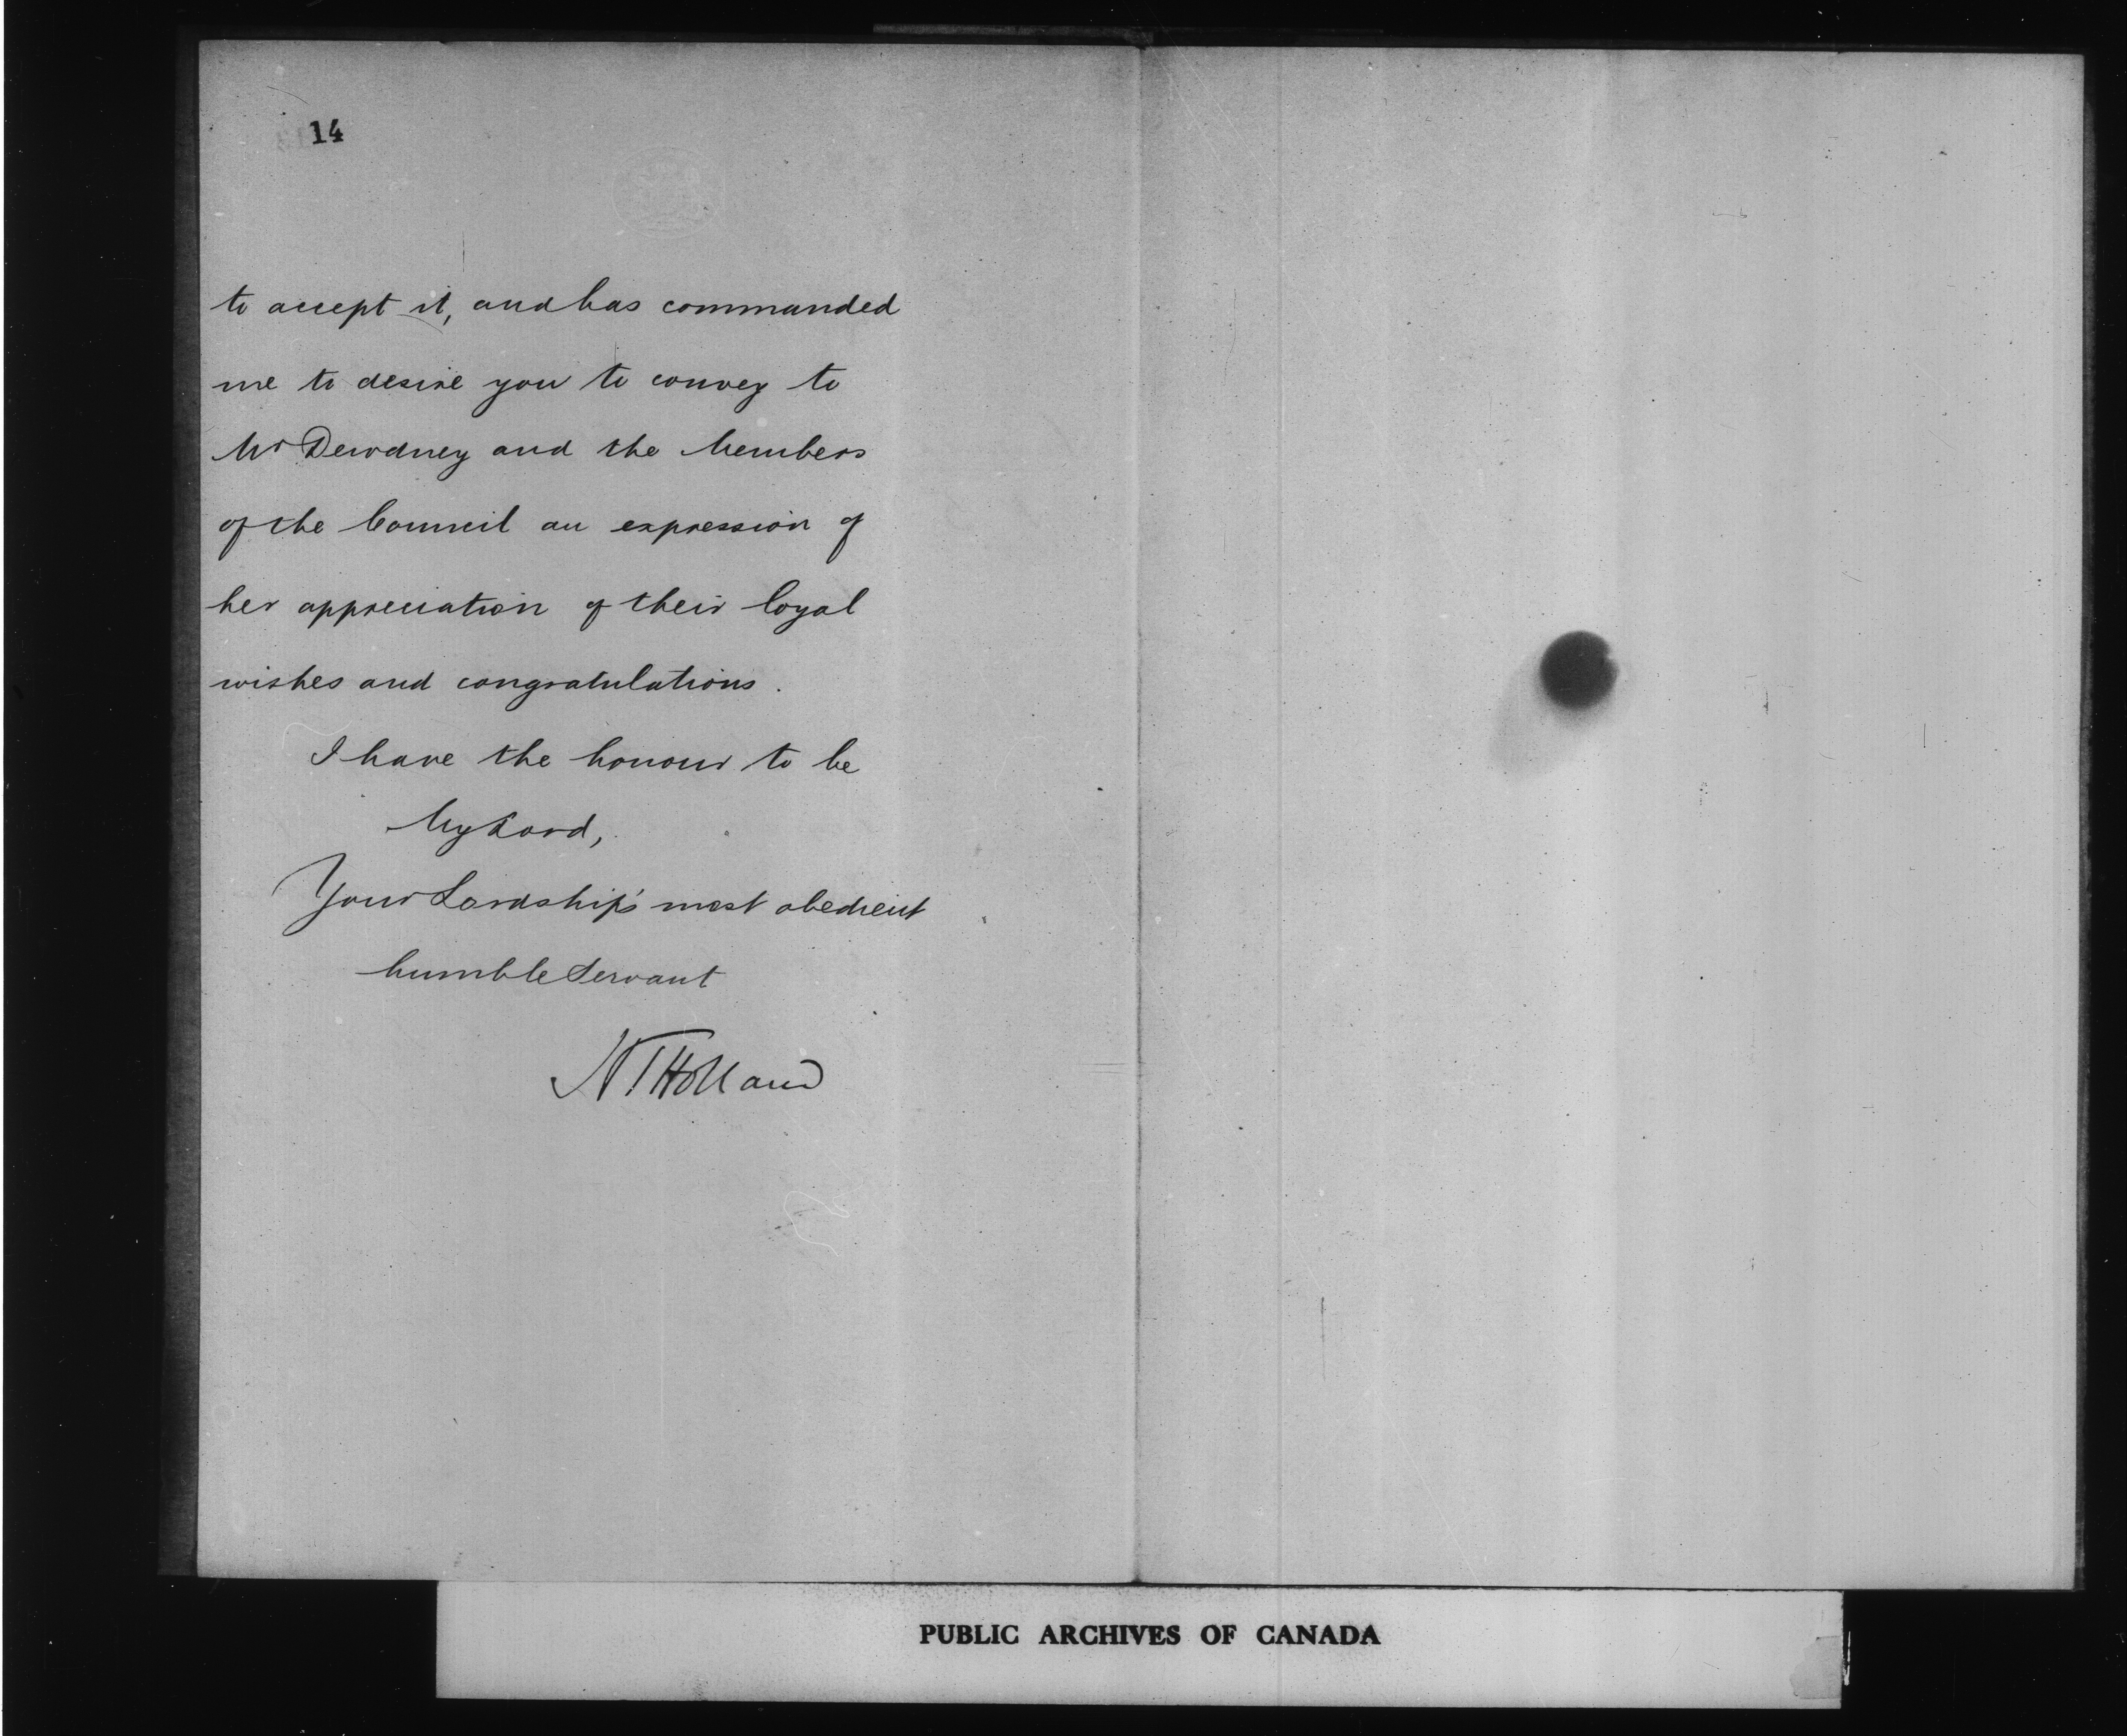 14
to accept it, and has commanded
me to desire you to convey to
Mr Dewdney and the Members
of the Council an expression of
her appreciation of their loyal
wishes and congratulations.
I have the honour to be
My Lord,
Your Lordship's most obedient
humble Servant
HTHolland
PUBLIC ARCHIVES OF CANADA